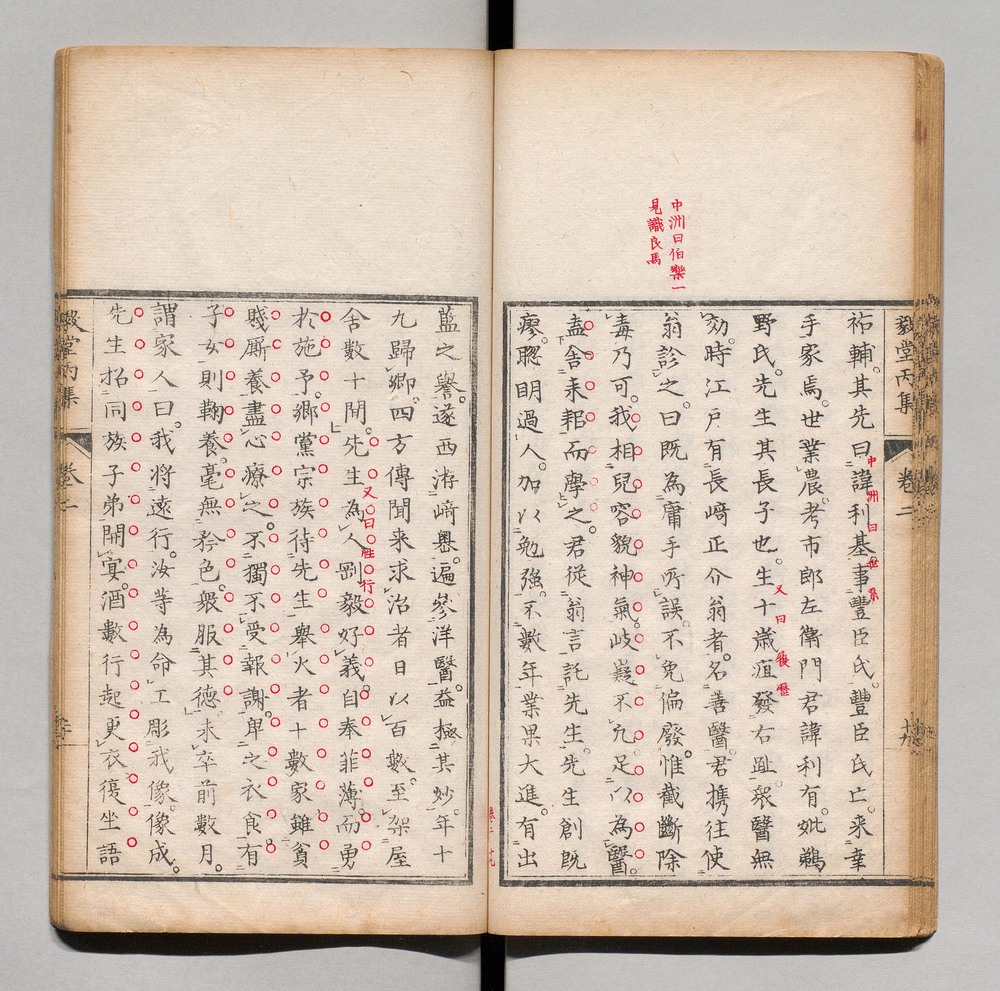 中洲曰伯樂一
見識良馬
毅堂丙集 卷二 十九
祐輔。其先曰諱利基事豐臣氏。豐臣氏亡。来幸
中洲曰世系
手家焉。世業農。考市郎左衛門君諱利有。妣鵜
野氏。先生其長子也。生十歲疽發右趾。衆醫無
又曰履歷
効。時江戸有長﨑正介翁者。名善醫。君携往使
翁診之。曰既為庸手所誤。不免偏廢。惟截斷除
毒乃可。我相兒容貌神氣。岐嶷不凡。足以為醫。
盍舍耒耜而學之。君従翁言託先生。先生創既
瘳。聡明過人。加以勉強。不數年業果大進。有出
卷二 十九
藍之譽。遂西游﨑嶴。遍參洋醫。益極其妙。年十
九歸鄉。四方傳聞来求治者日以百數。至架屋
舍數十間。先生為人剛毅好義。自奉菲薄。而勇
又曰性行
於施予。鄉黨宗族待先生舉火者十數家。雖貧
賤厮養。盡心療之。不獨不受報謝。畀之衣食。有
子女則鞠養。毫無矜色。衆服其德。未卒前數月。
謂家人曰。我将遠行。汝等為命工彫我像。像成。
先生招同族子弟開宴。酒數行起更衣復坐語
毅堂丙集 卷二